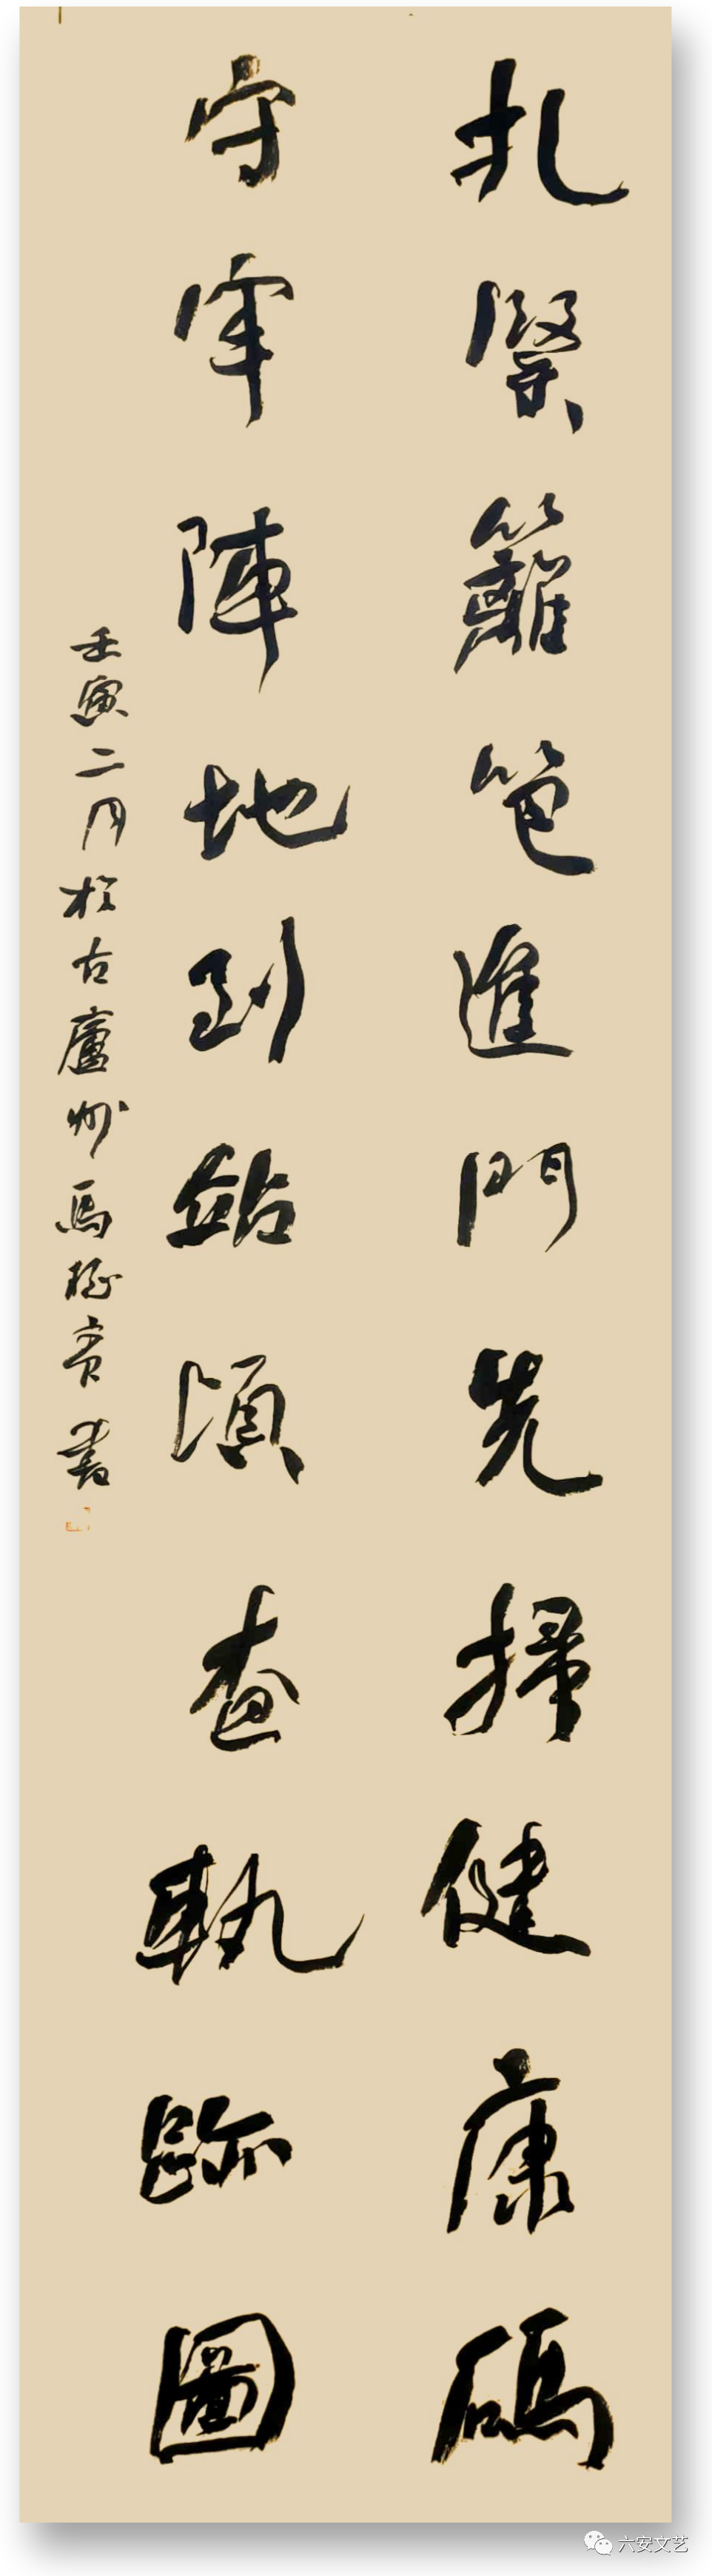 扎緊籬笆進門先掃健康碼
守牢陣地到站頃查軌跡圖
壬寅二月於古廬州馬
書
六安文艺